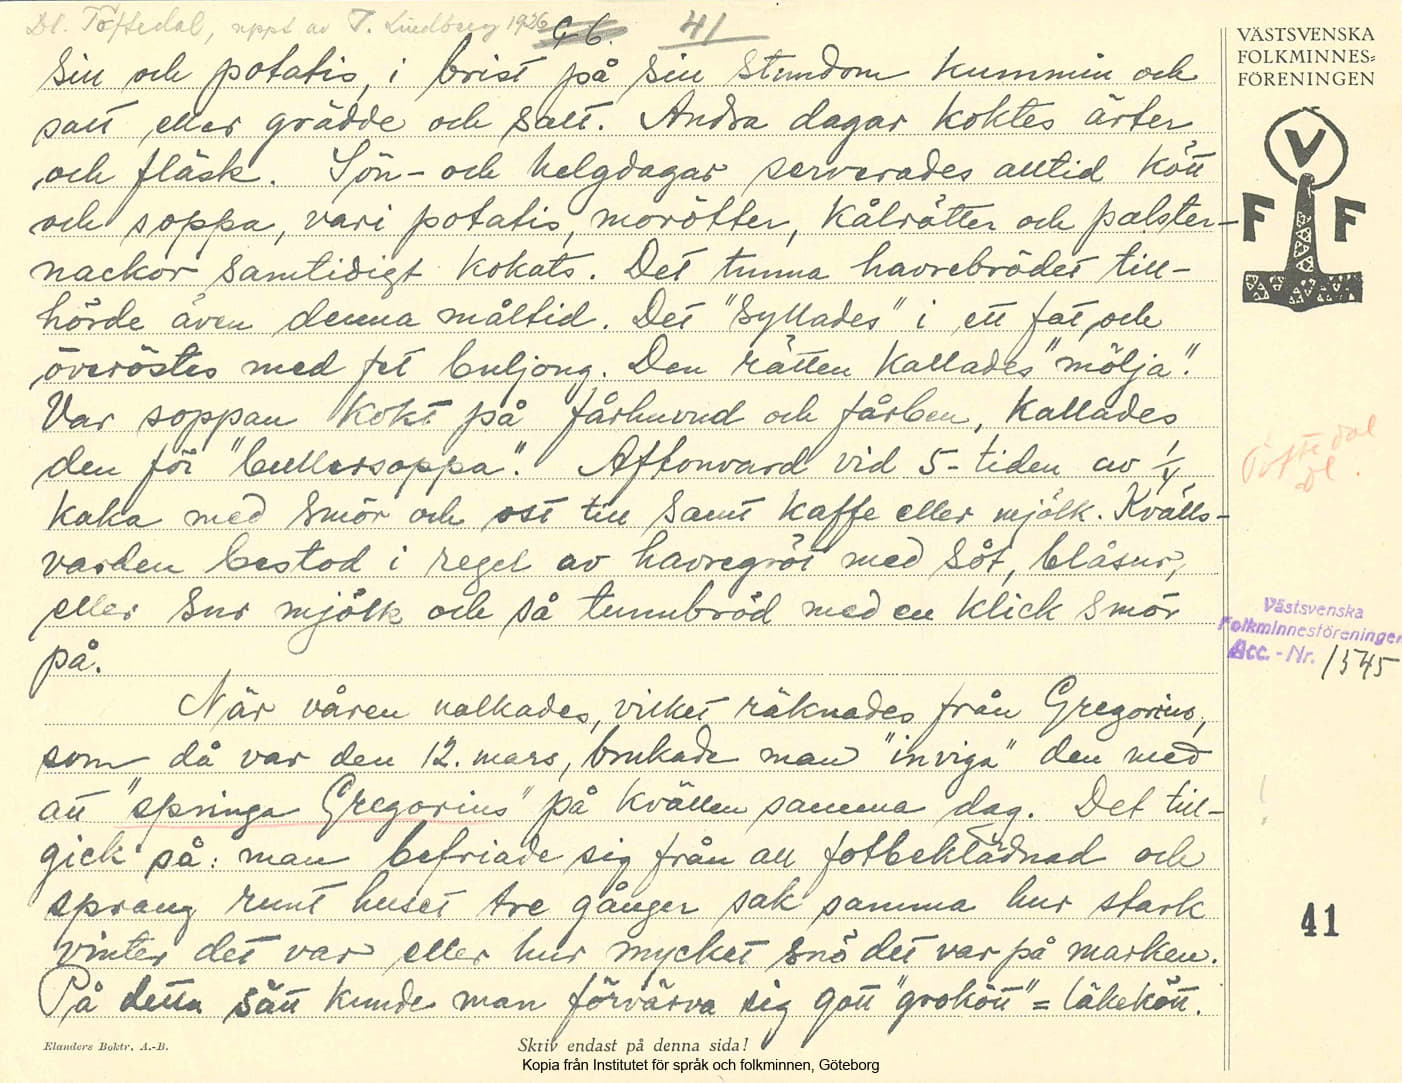 Dl. Töftedal, uppt. av T. Lindberg 1926
G 6.
41
VÄSTSVENSKA
FOLKMINNES=
FÖRENINGEN
V
F F
sill och potatis, i brist på sill stundom kummin och
salt eller grädde och salt. Andra dagar koktes ärter
och fläsk. Sön- och helgdagar serverades alltid kött
och soppa, vari potatis, morötter, kålrötter och palster-
nackor samtidigt kokats. Det tunna havrebrödet till-
hörde även denna måltid. Det "syllades" i ett fat och
överöstes med fet buljong. Den rätten kallades "mölja".
Var soppan kokt på fårhuvud och fårben, kallades
den för "bullersoppa". Aftonvard vid 5-tiden av 1/4
kaka med smör och ost till samt kaffe eller mjölk. Kvälls-
varden bestod i regel av havregröt med söt, blåsur,
eller sur mjölk och så tunnbröd med en klick smör
på.
När våren nalkades, vilket räknades från Gregorius,
som då var den 12. mars, brukade man "inviga" den med
att "springa Gregorius" på kvällen samma dag. Det till-
gick så: man befriade sig från all fotbeklädnad och
sprang runt huset tre gånger sak samma hur stark
vinter det var eller hur mycket snö det var på marken.
På detta sätt kunde man förvärva sig gott "grokött" = läkekött.
Töftedal
Dl.
Västsvenska
Folkminnesföreningen
Acc. - Nr. 1545
!
41
Elanders Boktr. A.-B.
Skriv endast på denna sida!
Kopia från Institutet för språk och folkminnen, Göteborg